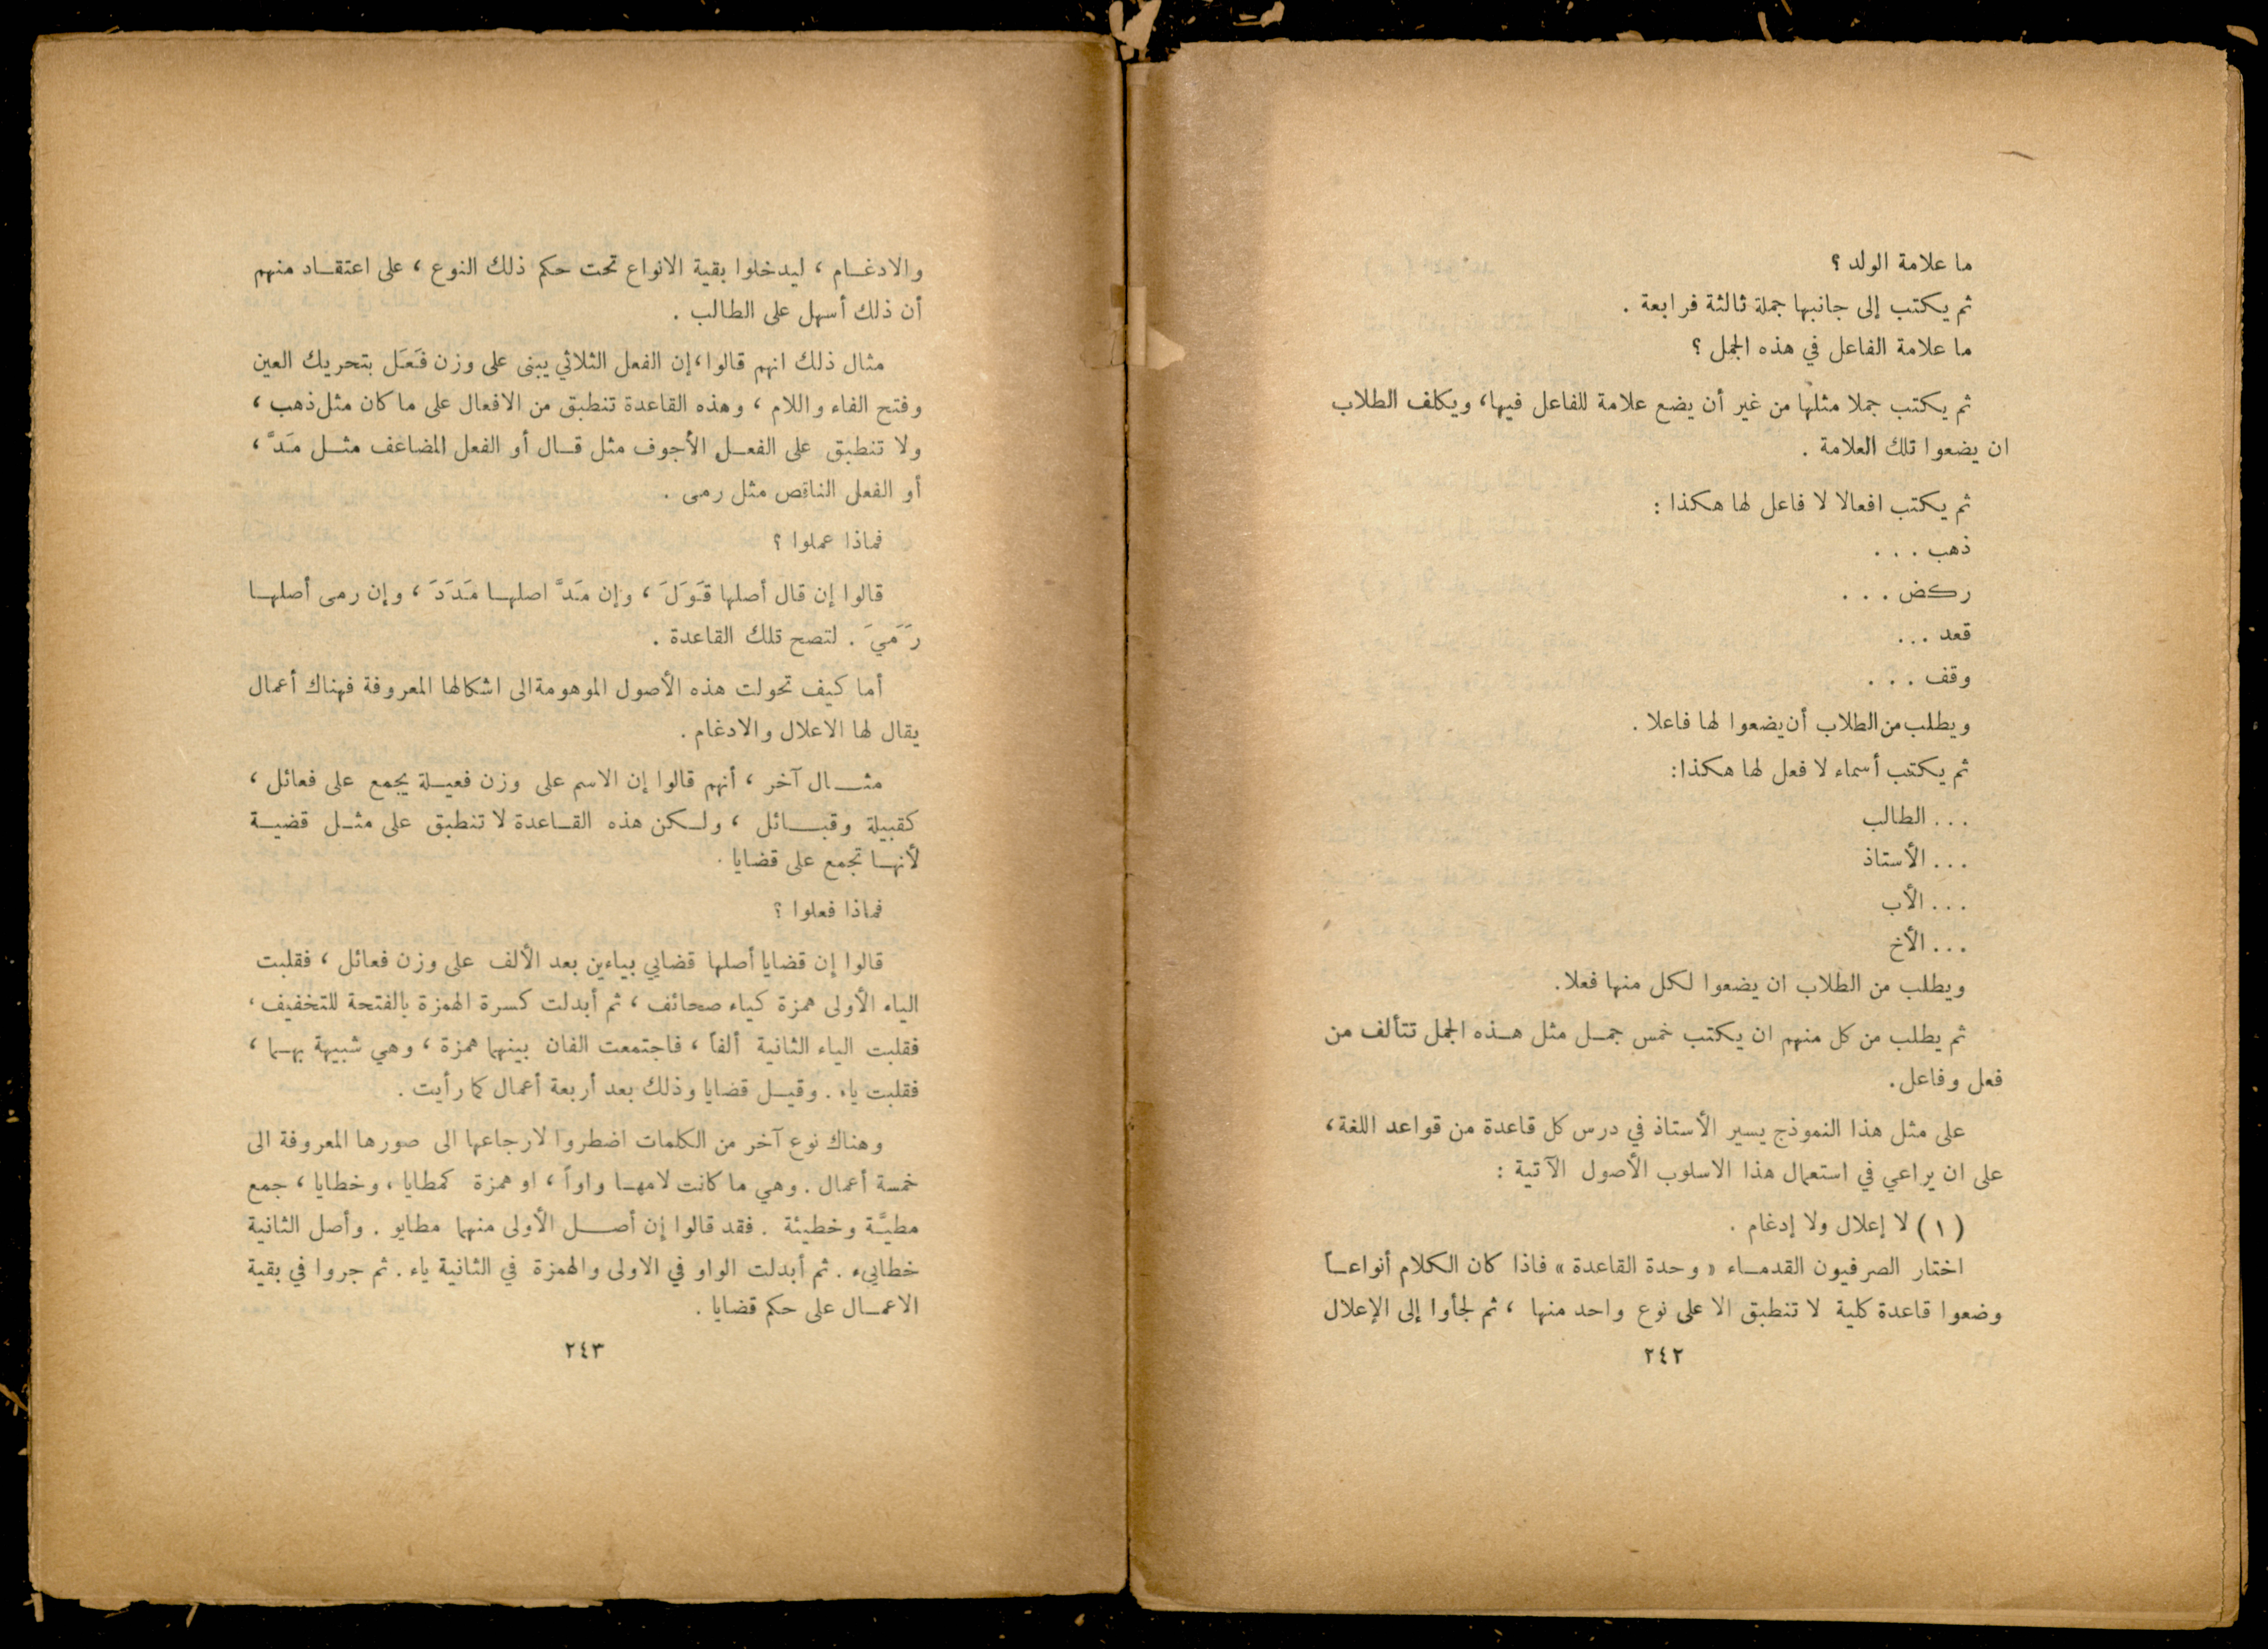 ما علامة الولد ؟
ثم يكتب إلى جانبها جملة ثالثة فرابعة .
ما علامة الفاعل في هذه الجمل ؟
ثم يكتب جملا مثلها من غير أن يضع علامة للفاعل فيها، ويكلف الطلاب
ان يضعوا تلك العلامة .
ثم يكتب افعالا لا فاعل لها هكذا :
ذهب . . .
ركض . . .
قعد . . .
وقف . . .
ويطلب من الطلاب أن يضعوا لها فاعلا .
ثم يكتب أسماء لا فعل لها هكذا:
. . . الطالب
. . . الأستاذ
. . . الأب
. . . الأخ
ويطلب من الطلاب ان يضعوا لكل منها فعلا.
ثم يطلب من كل منهم ان يكتب خمس جمـل مثل هـذه الجمل تتألف من
فعل وفاعل.
على مثل هذا النموذج يسير الأستاذ في درس كل قاعدة من قواعد اللغة،
على ان يراعي في استعمال هذا الاسلوب الأصول الآتية :
(١) لا إعلال ولا إدغام .
اختار الصرفيون القدمـاء « وحدة القاعدة » فاذا كان الكلام أنواعـاً
وضعوا قاعدة كلية لا تنطبق الا على نوع واحد منها ، ثم لجأوا إلى الإعلال
٢٤٢
والادغـام ، ليدخلوا بقية الانواع تحت حكم ذلك النوع ، على اعتقـاد منهم
أن ذلك أسهل على الطالب .
مثال ذلك انهم قالوا،إن الفعل الثلاثي يبنى على وزن فَعَل بتحريك العين
وفتح الفاء واللام ، وهذه القاعدة تنطبق من الافعال على ما كان مثل ذهب ،
ولا تنطبق على الفعـل الأجوف مثل قـال أو الفعل المضاعف مثـل مَدَّ ،
أو الفعل الناقص مثل رمى .
فماذا عملوا ؟
قالوا إن قال أصلها قَوَلَ ، وإن مَدَّ اصلهـا مَدَدَ ، وإن رمى أصلهـا
رَمَيَ . لتصح تلك القاعدة .
أما كيف تحولت هذه الأصول الموهومة الى اشكالها المعروفة فهناك أعمال
يقال لها الاعلال والادغام .
مثـال آخر ، أنهم قالوا إن الاسم على وزن فعيـلة يجمع على فعائل ،
كقبيلة وقبـائل ، ولـكن هذه القـاعدة لا تنطبق على مثـل قضيـة
لأنهـا تجمع على قضايا .
فماذا فعلوا ؟
قالوا إن قضايا أصلها قضايي بياءين بعد الألف على وزن فعائل ، فقلبت
الياء الأولى همزة كياء صحائف ، ثم أبدلت كسرة الهمزة بالفتحة للتخفيف ،
فقلبت الياء الثانية ألفاً ، فاجتمعت الفان بينهما همزة ، وهي شبيهة بهـما ،
فقلبت ياء . وقيـل قضايا وذلك بعد أربعة أعمال كما رأيت .
وهناك نوع آخر من الكلمات اضطروا لارجاعها الى صورها المعروفة الى
خمسة أعمال . وهي ما كانت لامهـا واواً ، او همزة كمطايا ، وخطايا ، جمع
مطيَّة وخطيئة . فقد قالوا إن أصـل الأولى منهما مطايو . وأصل الثانية
خطايىء . ثم أبدلت الواو في الاولى والهمزة في الثانية ياء . ثم جروا في بقية
الاعمـال على حكم قضايا .
٢٤٣